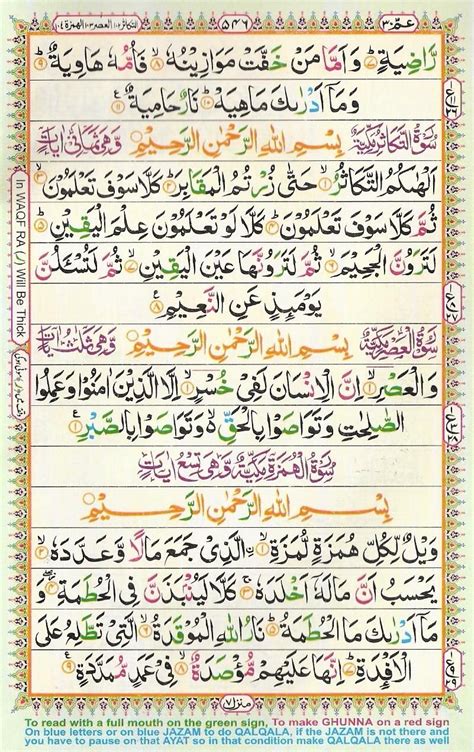 التكاثر ١٠٢ العصر ١٠٣ الهمزة ١٠٤
٥٤٦
عم ٣٠
رَّاضِيَةٍ ؕ﴿۷﴾ وَ اَمَّا مَنْ خَفَّتْ مَوَازِيْنُهٗ ۙ﴿۸﴾ فَاُمُّهٗ هَاوِيَةٌ ؕ﴿۹﴾
وَ مَاۤ اَدْرٰىكَ مَاهِيَهْ ؕ﴿۱۰﴾ نَارٌ حَامِيَةٌ ﴿۱۱﴾
سُوْرَةُ التَّكَاثُرِ مَكِّيَّةٌ بِسْمِ اللّٰهِ الرَّحْمٰنِ الرَّحِيْمِ وَهِىَ ثَمَانِىْ اٰيَاتٍ
اَلْهٰىكُمُ التَّكَاثُرُ ۙ﴿۱﴾ حَتّٰى زُرْتُمُ الْمَقَابِرَ ؕ﴿۲﴾ كَلَّا سَوْفَ تَعْلَمُوْنَ ۙ﴿۳﴾
ثُمَّ كَلَّا سَوْفَ تَعْلَمُوْنَ ؕ﴿۴﴾ كَلَّا لَوْ تَعْلَمُوْنَ عِلْمَ الْيَقِيْنِ ؕ﴿۵﴾
لَتَرَوُنَّ الْجَحِيْمَ ۙ﴿۶﴾ ثُمَّ لَتَرَوُنَّهَا عَيْنَ الْيَقِيْنِ ۙ﴿۷﴾ ثُمَّ لَتُسْـَٔلُنَّ
يَوْمَىِٕذٍ عَنِ النَّعِيْمِ ﴿۸﴾
سُوْرَةُ الْعَصْرِ مَكِّيَّةٌ بِسْمِ اللّٰهِ الرَّحْمٰنِ الرَّحِيْمِ وَهِىَ ثَلٰثُ اٰيَاتٍ
وَ الْعَصْرِ ۙ﴿۱﴾ اِنَّ الْاِنْسَانَ لَفِيْ خُسْرٍ ۙ﴿۲﴾ اِلَّا الَّذِيْنَ اٰمَنُوْا وَ عَمِلُوا
الصّٰلِحٰتِ وَ تَوَاصَوْا بِالْحَقِّ ۙ۬ وَ تَوَاصَوْا بِالصَّبْرِ ﴿۳﴾
سُوْرَةُ الْهُمَزَةِ مَكِّيَّةٌ وَهِىَ تِسْعُ اٰيَاتٍ
بِسْمِ اللّٰهِ الرَّحْمٰنِ الرَّحِيْمِ
وَيْلٌ لِّكُلِّ هُمَزَةٍ لُّمَزَةِ ۙ﴿۱﴾ ِ۟الَّذِيْ جَمَعَ مَالًا وَّ عَدَّدَهٗ ۙ﴿۲﴾
يَحْسَبُ اَنَّ مَالَهٗۤ اَخْلَدَهٗ ۚ﴿۳﴾ كَلَّا لَيُنْۢبَذَنَّ فِي الْحُطَمَةِ ؗۖ﴿۴﴾ وَ
مَاۤ اَدْرٰىكَ مَا الْحُطَمَةُ ؕ﴿۵﴾ نَارُ اللّٰهِ الْمُوْقَدَةُ ۙ﴿۶﴾ الَّتِيْ تَطَّلِعُ عَلَى
الْاَفْـِٕدَةِ ؕ﴿۷﴾ اِنَّهَا عَلَيْهِمْ مُّؤْصَدَةٌ ۙ﴿۸﴾ فِيْ عَمَدٍ مُّمَدَّدَةٍ ﴿۹﴾
منزل ۷
In WAQF RA (ر) Will Be Thick
To read with a full mouth on the green sign, To make GHUNNA on a red sign
On blue letters or on blue JAZAM to do QALQALA, if the JAZAM is not there and
you have to pause on that AYAT so in that condition make QALQALA there as well